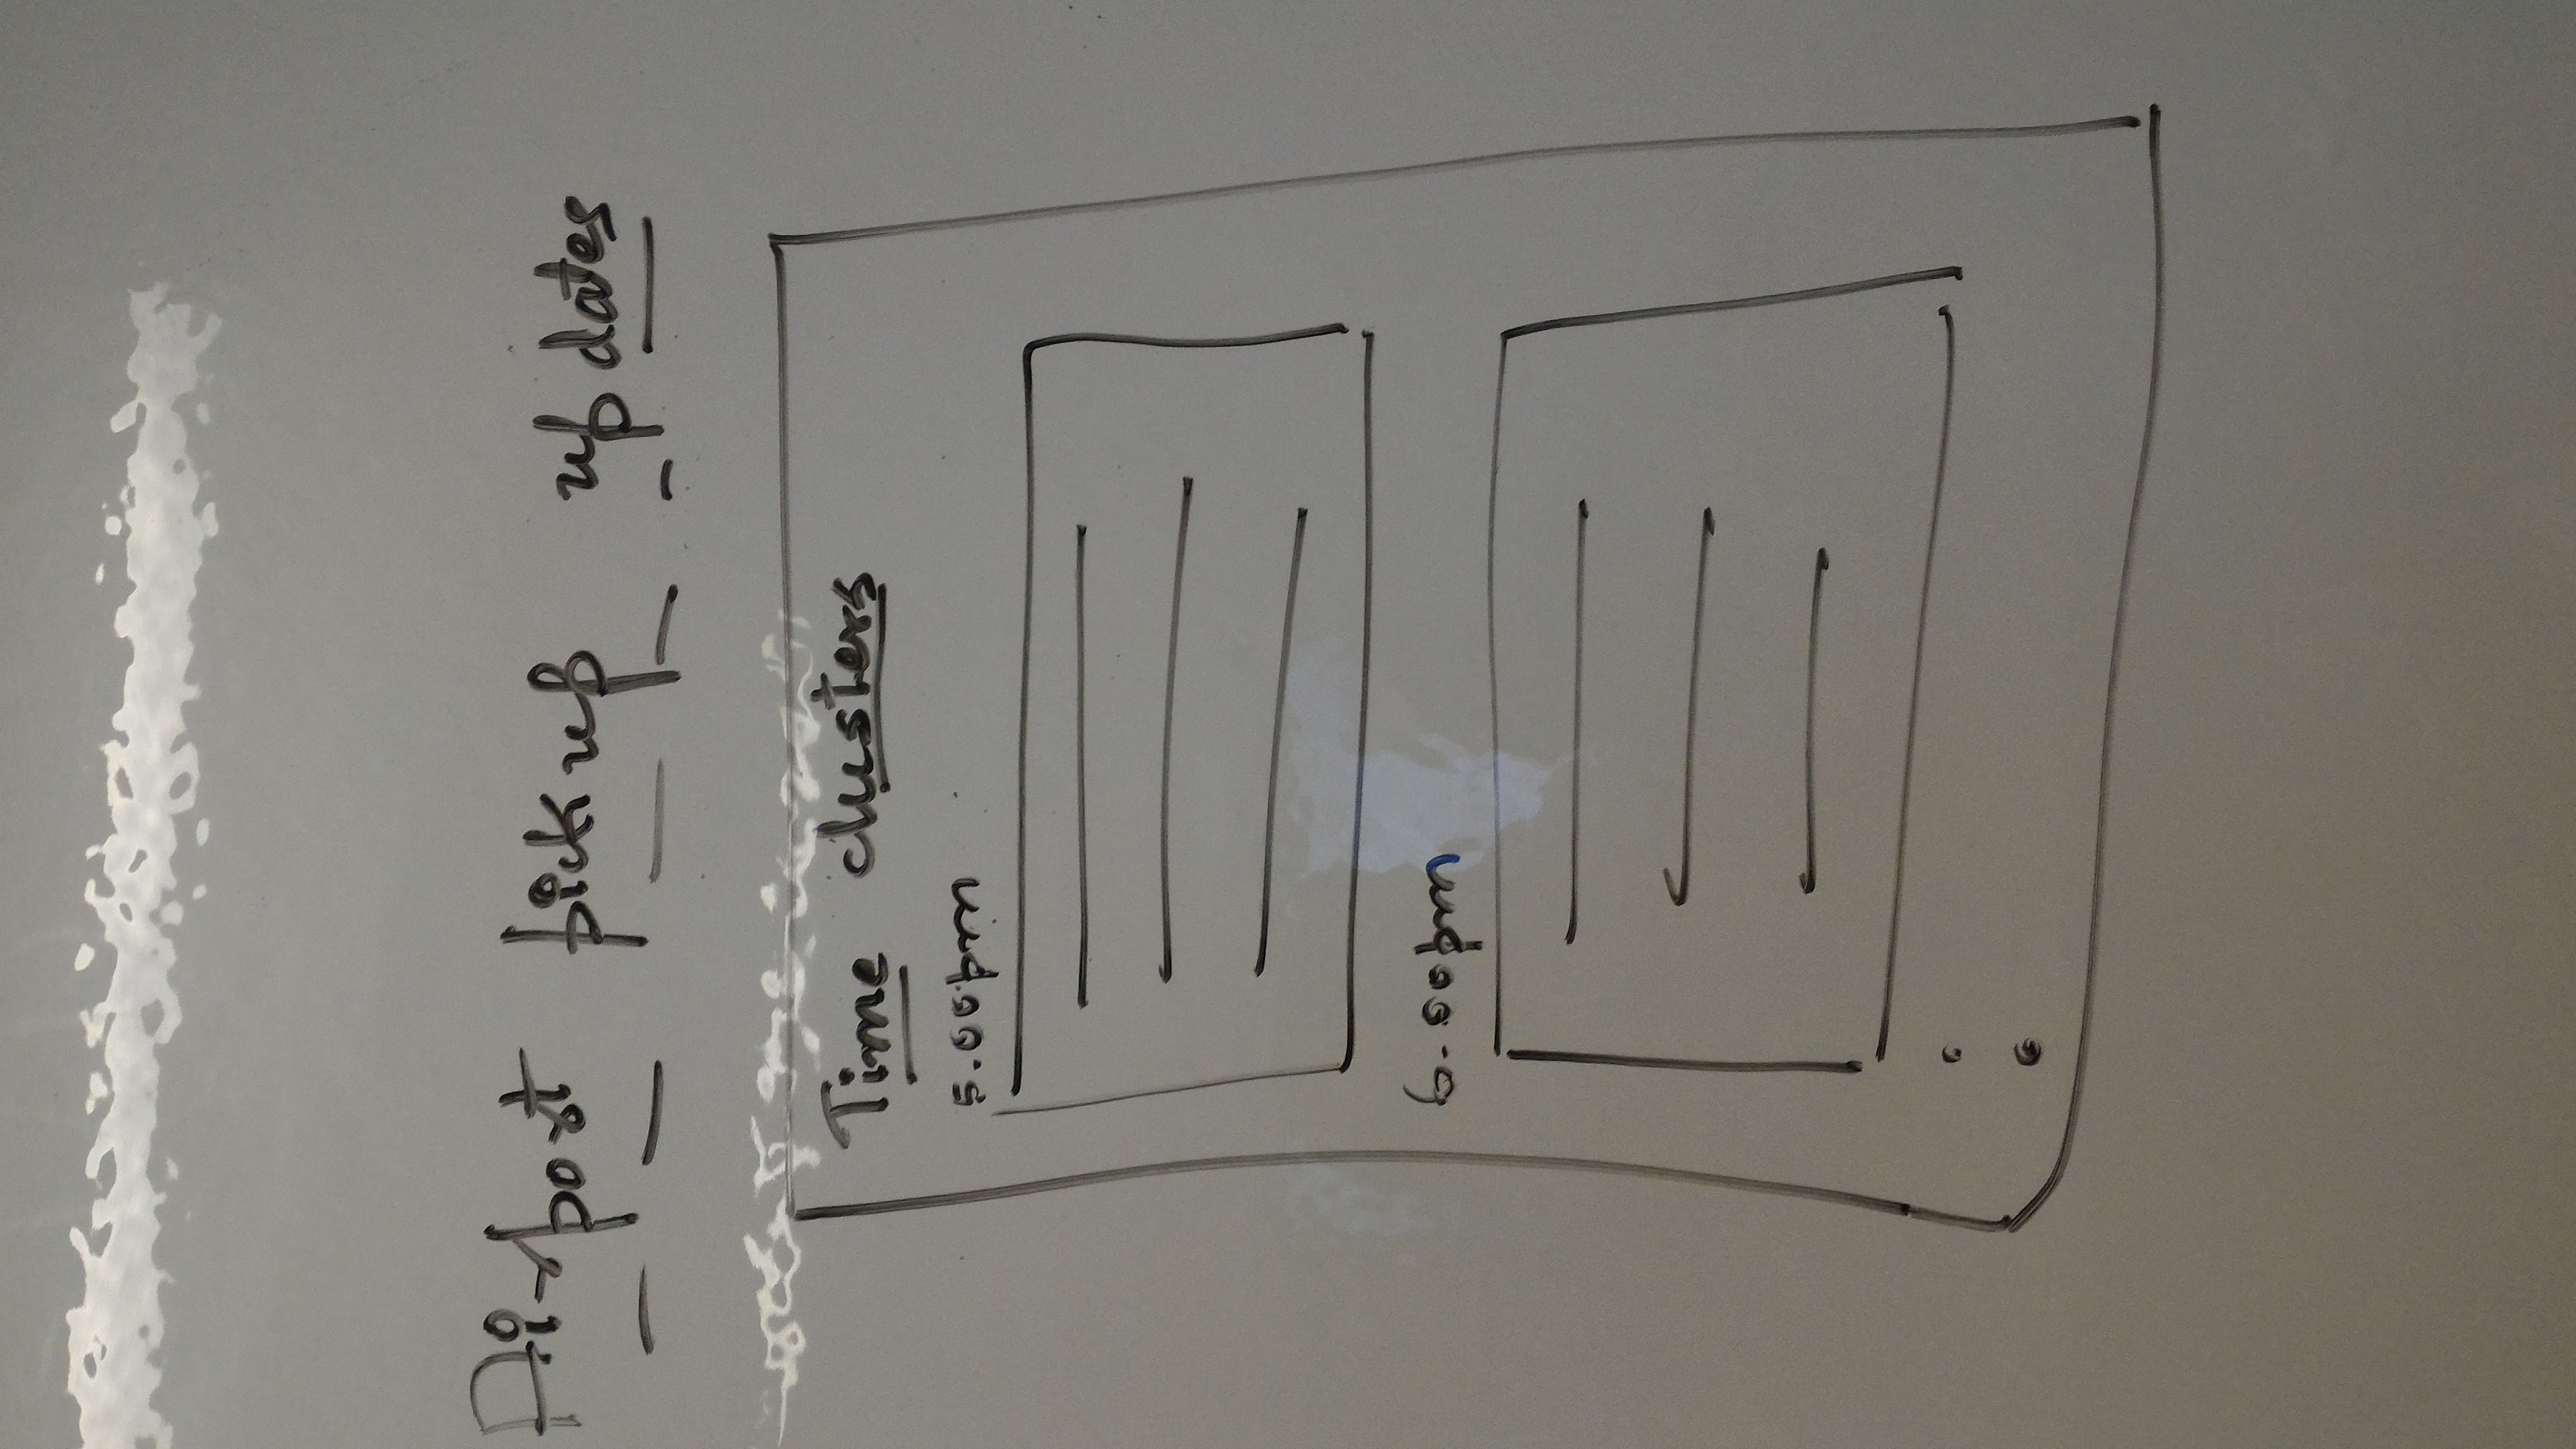 Airport pickup updates
Time clusters
5.00pm
6.00pm